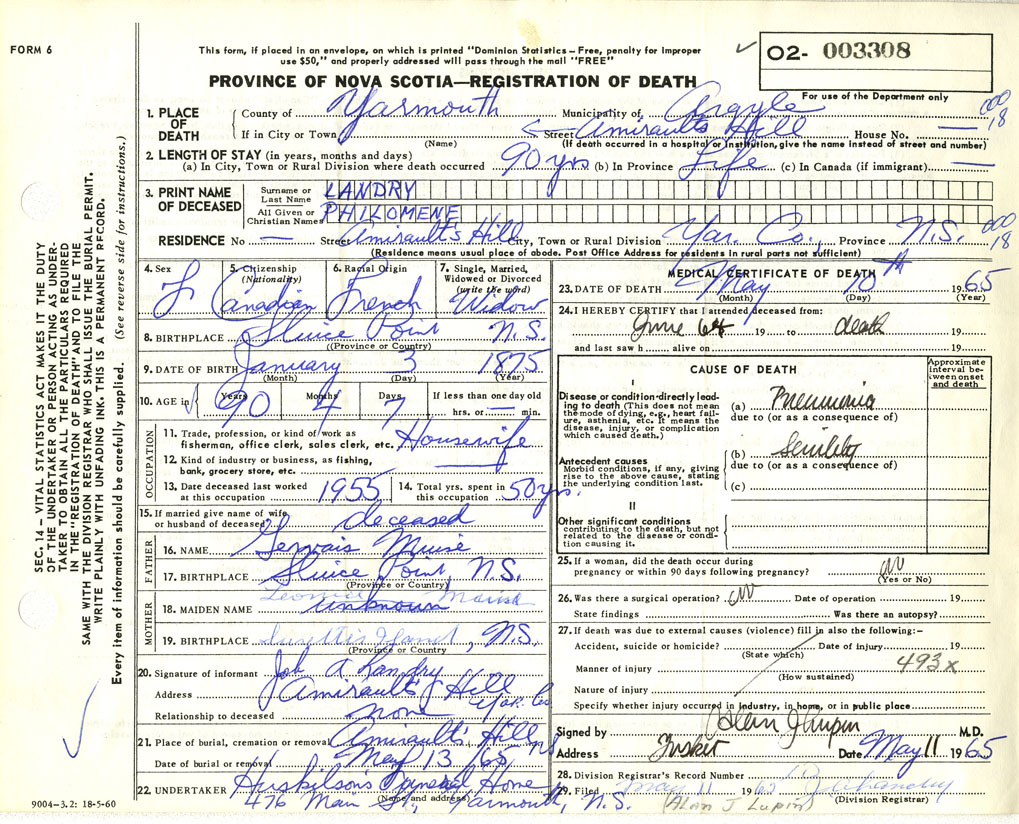 FORM 6
This form, if placed in an envelope, on which is printed "Dominion Statistics—Free, penalty for improper
use $50," and properly addressed will pass through the mail "FREE"
✓ 02- 003308
For use of the Department only
PROVINCE OF NOVA SCOTIA—REGISTRATION OF DEATH
1. PLACE OF DEATH County of Yarmouth Municipality of Argyle 000 18
If in City or Town (Name) Street Amiraults Hill House No. —
(If death occurred in a hospital or institution, give the name instead of street and number)
2. LENGTH OF STAY (in years, months and days)
(a) In City, Town or Rural Division where death occurred 90 yrs (b) In Province Life (c) In Canada (if immigrant) —
3. PRINT NAME OF DECEASED Surname or Last Name LANDRY
All Given or Christian Names PHILOMENE
RESIDENCE No — Street Amirault's Hill City, Town or Rural Division Yar. Co., Province N.S. 000 18
(Residence means usual place of abode. Post Office Address for residents in rural parts not sufficient)
4. Sex F
5. Citizenship (Nationality) Canadian
6. Racial Origin French
7. Single, Married, Widowed or Divorced (write the word) Widow
8. BIRTHPLACE Sluice Point N.S.
((Province or Country)
9. DATE OF BIRTH January 3 1875
(Month) (Day) (Year)
10. AGE in Years 90 Months 4 Days 7 If less than one day old
hrs. or — min.
OCCUPATION
11. Trade, profession, or kind of work as
fisherman, office clerk, sales clerk, etc. Housewife
12. Kind of industry or business, as fishing,
bank, grocery store, etc. —
13. Date deceased last worked at this occupation 1955
14. Total yrs. spent in this occupation 50 yrs.
15. If married give name of wife or husband of deceased deceased
FATHER
16. NAME Gervais Muise
17. BIRTHPLACE Sluice Point N.S.
(Province or Country)
MOTHER
18. MAIDEN NAME unknown
19. BIRTHPLACE Surettes Island, N.S.
(Province or Country
20. Signature of informant Job A Landry
Address Amirault's Hill Yar. Co
Relationship to deceased none
21. Place of burial, cremation or removal Amirault's Hill NS
Date of burial or removal May 13 /65
22. UNDERTAKER Huskilson's Funeral Home
(Name and address)
476 Main St., Yarmouth, N.S.
9004-3.2: 18-5-60
MEDICAL CERTIFICATE OF DEATH
23. DATE OF DEATH May 10th 1965
(Month) (Day) (Year)
24. I HEREBY CERTIFY that I attended deceased from:
June 64 19 to death 19
and last saw h alive on 19
CAUSE OF DEATH
Approximate interval between onset and death
I
Disease or condition directly leading to death (This does not mean
the mode of dying, e.g., heart failure, asthenia, etc. It means the
disease, injury, or complication
which caused death.)
(a) Pneumonia
due to (or as a consequence of)
Antecedent causes
Morbid conditions, if any, giving
rise to the above cause, stating
the underlying condition last.
(b) Senility
due to (or as a consequence of)
(c)
II
Other significant conditions
contributing to the death, but not
related to the disease or condition causing it.
25. If a woman, did the death occur during
pregnancy or within 90 days following pregnancy? no
(Yes or No)
26. Was there a surgical operation? no Date of operation 19
State findings Was there an autopsy?
27. If death was due to external causes (violence) fill in also the following:—
Accident, suicide or homicide? Date of injury 19
(State which)
Manner of injury 493x
(How sustained)
Nature of injury
Specify whether injury occurred in industry, in home, or in public place
Signed by Alan J Lupin M.D.
Address Tusket Date May 11 1965
28. Division Registrar's Record Number
29. Filed May 11 1965
(Alan J Lupin) (Division Registrar)
SEC. 14 — VITAL STATISTICS ACT MAKES IT THE DUTY
OF THE UNDERTAKER OR PERSON ACTING AS UNDERTAKER TO OBTAIN ALL THE PARTICULARS REQUIRED
IN THE "REGISTRATION OF DEATH" AND TO FILE THE
SAME WITH THE DIVISION REGISTRAR WHO SHALL ISSUE THE BURIAL PERMIT.
WRITE PLAINLY WITH UNFADING INK. THIS IS A PERMANENT RECORD.
Every item of information should be carefully supplied. (See reverse side for instructions.)